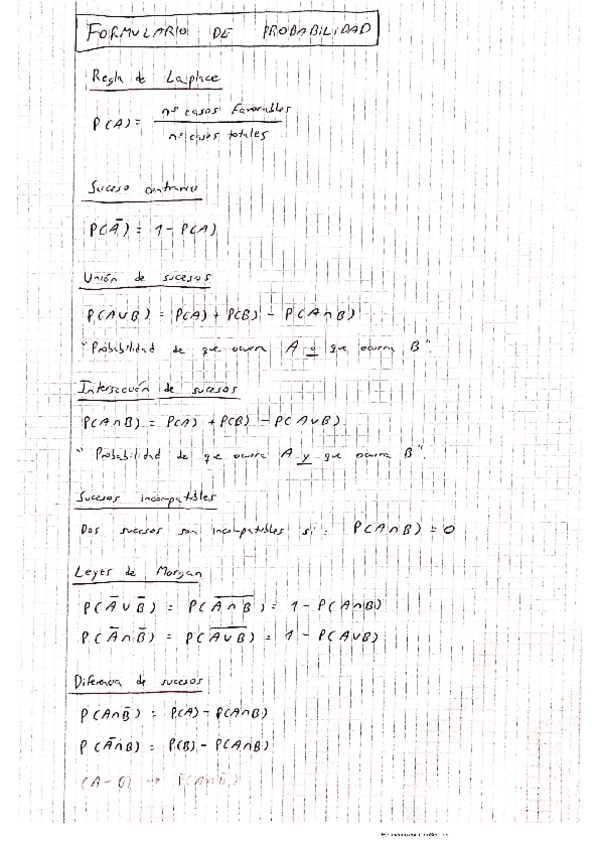 FORMULARIO DE PROBABILIDAD
Regla de Laplace
P(A) = nº casos favorables / nº casos totales
Suceso contrario
P(Ā) = 1 - P(A)
Unión de sucesos
P(A∪B) = P(A) + P(B) - P(A∩B)
"Probabilidad de que ocurra A o que ocurra B".
Intersección de sucesos
P(A∩B) = P(A) + P(B) - P(A∪B)
"Probabilidad de que ocurra A y que ocurra B".
Sucesos incompatibles
Dos sucesos son incompatibles si: P(A∩B) = 0
Leyes de Morgan
P(Ā∪B̄) = P(A̅∩̅B̅) = 1 - P(A∩B)
P(Ā∩B̄) = P(A̅∪̅B̅) = 1 - P(A∪B)
Diferencia de sucesos
P(A∩B̄) = P(A) - P(A∩B)
P(Ā∩B) = P(B) - P(A∩B)
(A-B) → P(A∩B̄)